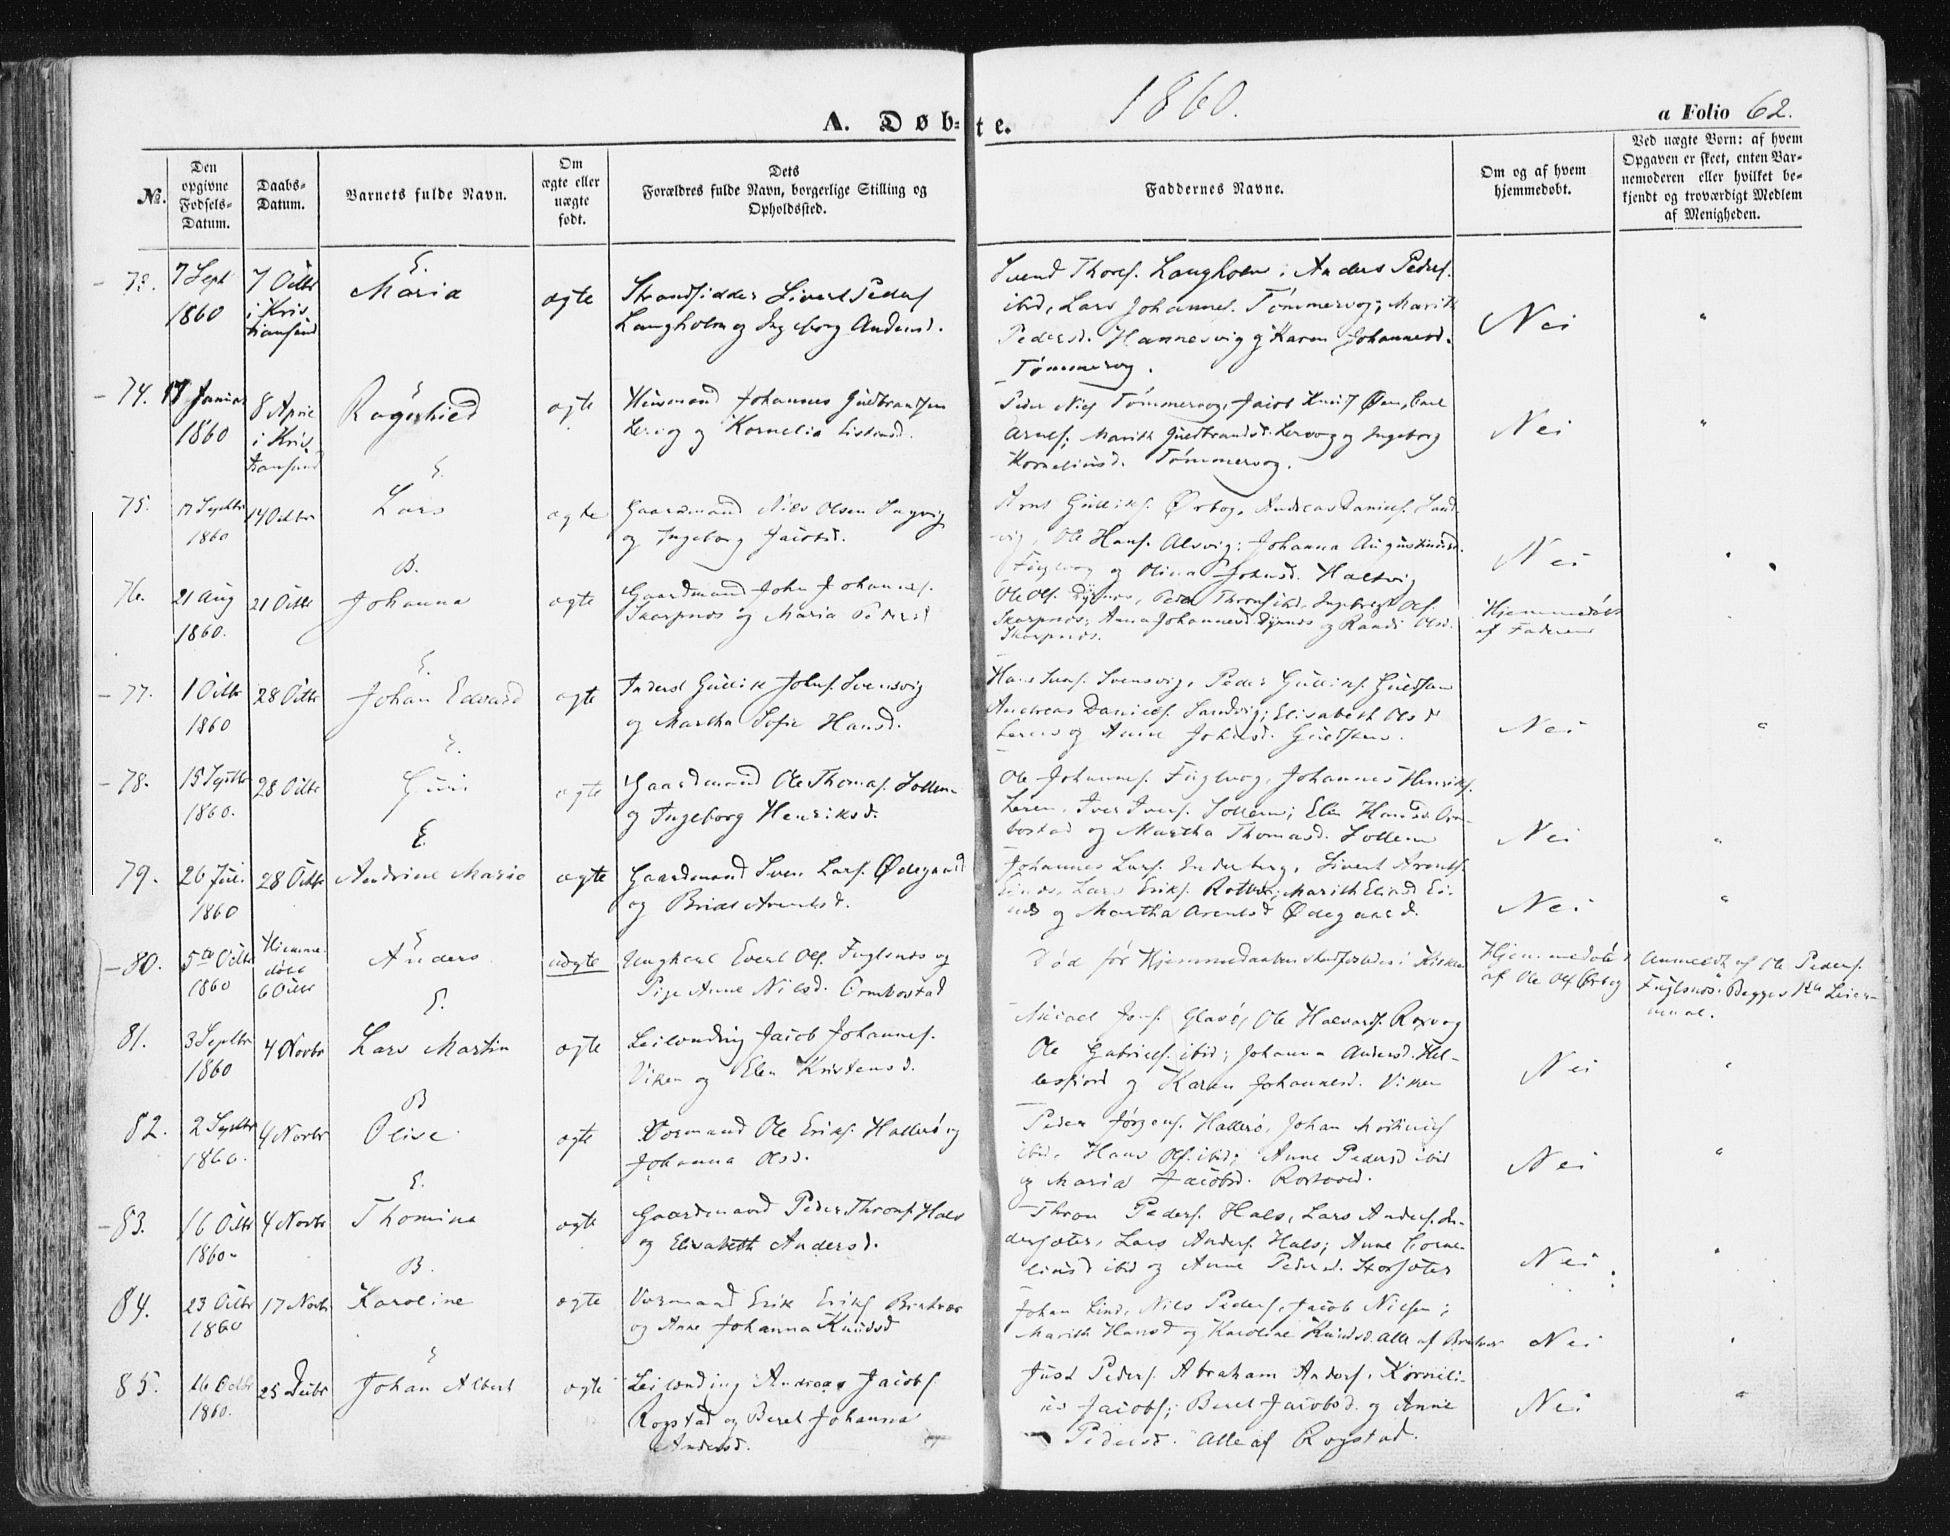 1860.
A. Døb-te.
a Folio 62.
№.
Den opgivne Fødsels-Datum.
Daabs-Datum.
Barnets fulde Navn.
Om ægte eller uægte født.
Dets Forældres fulde Navn, borgerlige Stilling og Opholdssted.
Faddernes Navne.
Om og af hvem hjemmedøbt.
Ved uægte Børn: af hvem Opgaven er skeet, enten Barnemoderen eller hvilket bekjendt og troværdigt Medlem af Menigheden.
73. 7 Sept 1860
7 Octbr i Kristiansund
E. Maria
ægte
Strandsidder Sivert Peders
Langholm og Ingeborg Andersd.
Svend Thores. Langholm; Anders Peders.
ibid, Lars Johannes. Tømmervog; Marith
Pedersd. Hannesvig og Karen Johannesd.
Tømmervog.
Nei
"
74. 17 Januar 1860
8 April i Kristiansund
E Ragnhild
ægte
Huusmand Johannes Gudbrandsen
og Kornelia
Peder Niels Tømmervog, Jacob
Arnes; Marith Gudbrandsd. Lervog og Ingeborg
Korneliusd. Tømmervog.
Nei
"
75. 17 Septbr 1860
14 Octbr
E. Lars
ægte
Gaardmand Niels Olsen
og Ingeborg Jacobsd.
Arnt Gulliks. Ørbog, Andreas Daniels. Sand-
vig, Ole Hans. Alsvig; Johanna Augustinusd.
Fuglvog og Olina Johnsd. Haltvig
Nei
"
76. 21 Aug 1860.
21 Octbr
B. Johanna
ægte
Gaardmand John Johannes.
Skarpnes og Maria Pedersd
Ole Ols. Dyrnes, Peder Throns. ibid, Ingebrigt Ols.
Skarpnes; Anna Johannesd. Dyrnes og Randi Olsd.
Skarpnes.
Hjemmedøbt
af Faderen
"
77. 1 Octbr 1860
28 Octbr
E. Johan Edvard
ægte
Inderst Gullik Johns. Svensvig
og Martha Sofie Hansd.
Hans Svensvig, Peder Gulliks.
Andreas Daniels. Sandvig; Elisabeth Olsd
Leren og Anne Johnsd.
Nei
"
78. 15 Septbr 1860.
28 Octbr
E. Guri
ægte
Gaardmand Ole Thomas. Sollem
og Ingeborg Henriksd.
Ole Johannes. Fuglvog, Johannes Henriks.
Leren, Iver Ivers. Sollem; Elen Hansd. Orm-
bostad og Martha Thomasd. Sollem
Nei
"
79. 26 Juli 1860
28 Octbr
E. Andrine Marie
ægte
Gaardmand Sven Lars. Ødegaard
og Brit Arentsd.
Johannes Lars. Inderberg, Sivert Arents.
Lars Eriks. Marith
og Martha Arentsd Ødegaard.
Nei
"
80. 5te Octbr 1860
Hjemmedøbt 6 Octbr
E Anders
uægte
Ungkarl Evert Ols. Fuglsnes og
Pige Anne Nilsd. Ormbostad
Død før Hjemmedaaben stadfæstedes i Kirken
Hjemmedøbt
af Ole Ols Ørbog
Anmeldt af Ole Peders.
Fuglsnes. Begges 1ste Leier-
maal.
81. 3 Septbr 1860
4 Novbr
E. Lars Martin
ægte
Leilænding Jacob Johannes.
Viken og Elen Kristensd.
Micael Jons. Glasø, Ole Halvards. Roxvog
Ole Gabriels. ibid; Johanna Andersd. Hel-
lesfjord og Karen Johannesd. Viken
Nei
"
82. 2 Septbr 1860.
4 Novbr
B Olive
ægte
Vormand Ole Eriks. Hallerø og
Johanna Olsd.
Peder Jørgens. Hallerø, Johan
ibid, Hans Ols. ibid; Anne Pedersd ibid
og Maria Jacobsd.
Nei
"
83. 16 Octbr 1860
4 Novbr
E. Thomine
ægte
Gaardmand Peder Throns. Hals
og Elisabeth Andersd.
Thron Peders. Hals, Lars Anders. In-
dersæter, Lars Anders. Hals; Anne Corne-
liusd ibid og Anne Pedersd. Storsæter
Nei
"
84. 23 Octbr 1860
17 Novbr
B. Karoline
ægte
Vormand Erik Eriks Bratvær
og Anne Johanna Knudsd
Johan Lind, Nils Peders, Jacob Nielsen;
Marith Hansd og Karoline Knudsd. alle af Bratvær
Nei
"
85. 26 Octbr 1860.
25 Decbr
E Johan Albert
ægte
Leilænding Andreas Jacobs
Rogstad og Beret Johanna
Andersd.
Just Peders. Abraham Anders. Korneli-
us Jacobs; Beret Jacobsd. og Anne
Pedersd. Alle af Rogstad.
Nei
"